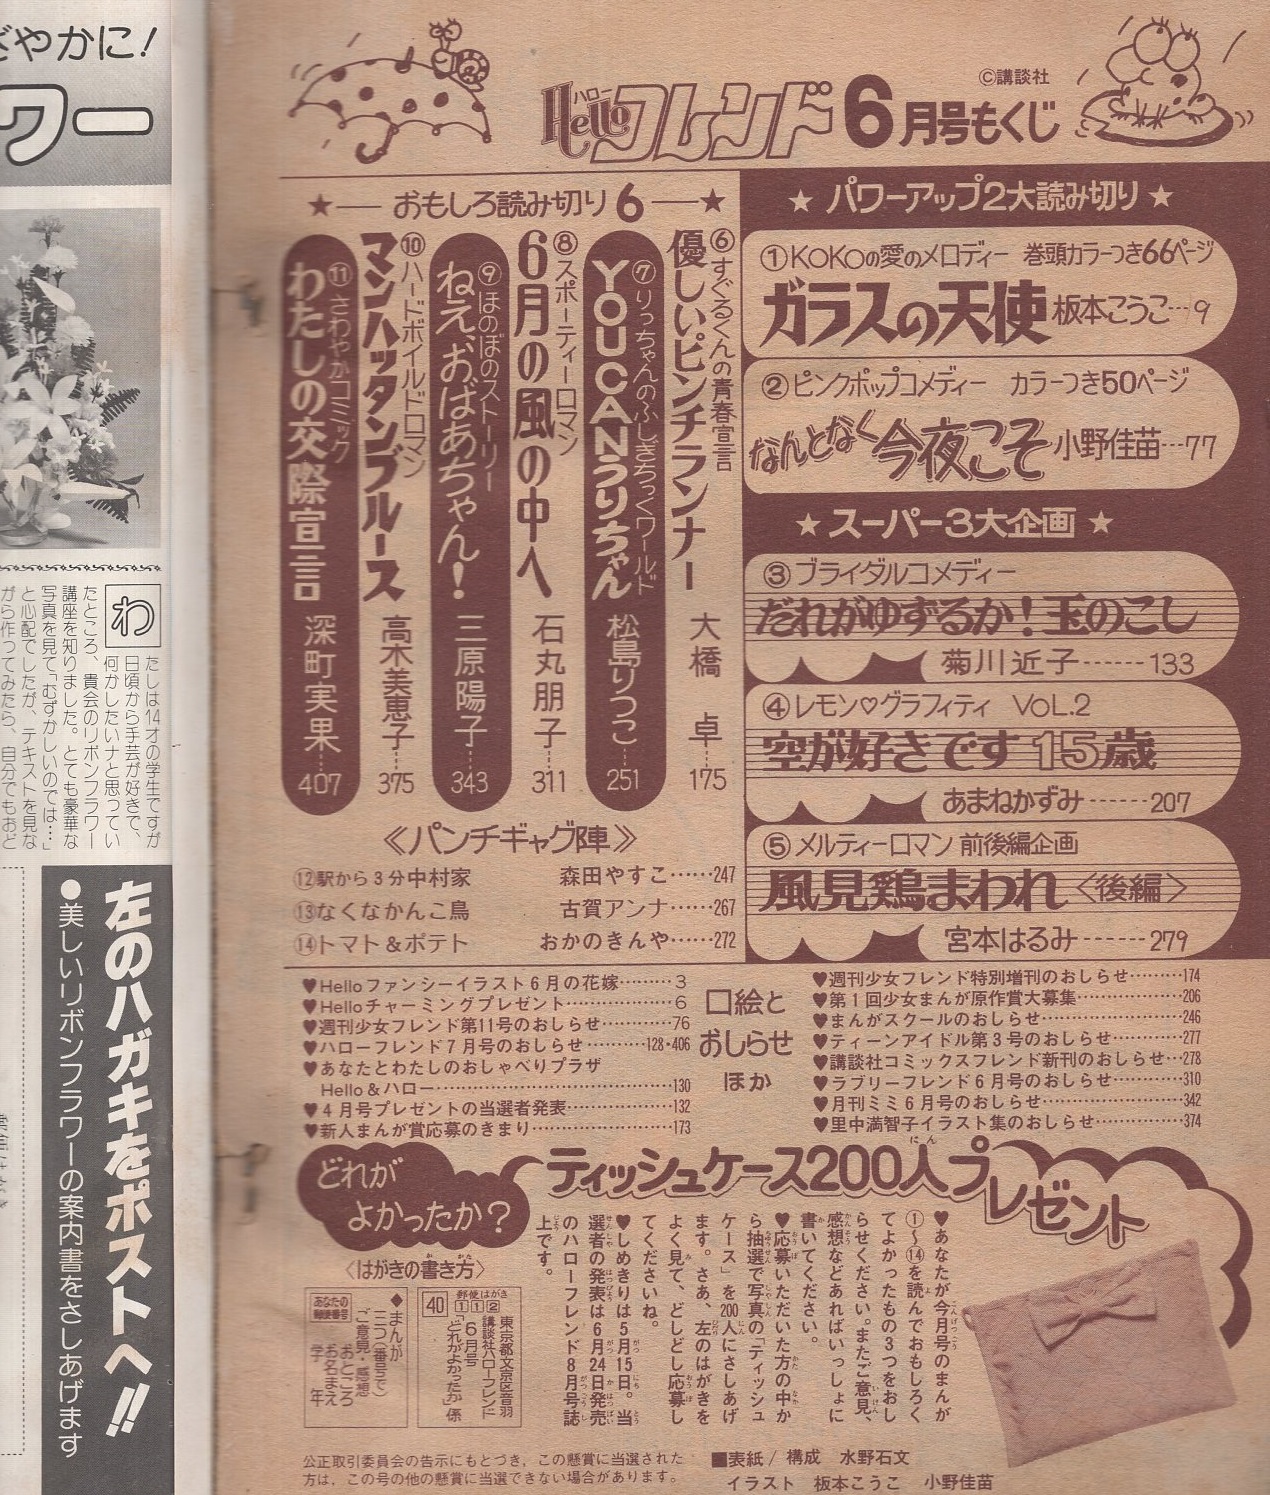 ©講談社
Helloハローフレンド6月号もくじ
★パワーアップ2大読み切り★
①KOKOの愛のメロディー 巻頭カラーつき66ページ
ガラスの天使 板本こうこ…9
②ピンクポップコメディー カラーつき50ページ
なんとなく今夜こそ 小野佳苗…77
★スーパー3大企画★
③ブライダルコメディー
だれがゆずるか!玉のこし
菊川近子……133
④レモン♡グラフィティ VOL.2
空が好きです15歳
あまねかずみ……207
⑤メルティーロマン 前後編企画
風見鶏まわれ〈後編〉
宮本はるみ……279
★―おもしろ読み切り6―★
⑥すぐるくんの青春宣言
優しいピンチランナー 大橋 卓…175
⑦りっちゃんのふしぎちっくワールド
YOUCANうりちゃん 松島りつこ…251
⑧スポーティーロマン
6月の風の中へ 石丸朋子…311
⑨ほのぼのストーリー
ねえ、おばあちゃん! 三原陽子…343
⑩ハードボイルドロマン
マンハッタンブルース 高木美恵子…375
⑪さわやかコミック
わたしの交際宣言 深町実果…407
《パンチギャグ陣》
⑫駅から3分中村家 森田やすこ……247
⑬なくなかんこ鳥 古賀アンナ……267
⑭トマト&ポテト おかのきんや……272
口絵と
おしらせ
ほか
♥Helloファンシーイラスト6月の花嫁………3
♥Helloチャーミングプレゼント…………6
♥週刊少女フレンド第11号のおしらせ………76
♥ハローフレンド7月号のおしらせ………128・406
♥あなたとわたしのおしゃべりプラザ
Hello&ハロー…………130
♥4月号プレゼントの当選者発表…………132
♥新人まんが賞応募のきまり…………173
♥週刊少女フレンド特別増刊のおしらせ………174
♥第1回少女まんが原作賞大募集…………206
♥まんがスクールのおしらせ…………246
♥ティーンアイドル第3号のおしらせ………277
♥講談社コミックスフレンド新刊のおしらせ…278
♥ラブリーフレンド6月号のおしらせ………310
♥月刊ミミ6月号のおしらせ…………342
♥里中満智子イラスト集のおしらせ………374
どれが
よかったか?
ティッシュケース200人プレゼント
♥あなたが今月号のまんが
①〜⑭を読んでおもしろく
てよかったもの3つをおし
らせください。またご意見、
感想などあればいっしょに
書いてください。
♥応募いただいた方の中か
ら抽選で写真の「ティッシュ
ケース」を200人にさしあげ
ます。さあ、左のはがきを
よく見て、どしどし応募し
てくださいね。
♥しめきりは5月15日。当
選者の発表は6月24日発売
のハローフレンド8月号誌
上です。
〈はがきの書き方〉
郵便はがき
112
40
東京都文京区音羽
講談社ハローフレンド
6月号
「どれがよかったか」係
◆まんが
三つ(番号で)
ご意見・感想
おところ
お名まえ
学年
あなたの
郵便番号
公正取引委員会の告示にもとづき、この懸賞に当選された
方は、この号の他の懸賞に当選できない場合があります。
■表紙/構成 水野石文
イラスト 板本こうこ 小野佳苗
ざやかに!
ワー
わたしは14才の学生ですが
日頃から手芸が好きで、
何かしたいナと思ってい
たところ、貴会のリボンフラワー
講座を知りました。とても豪華な
写真を見て「むずかしいのでは…」
と心配でしたが、テキストを見な
がら作ってみたら、自分でもおど
左のハガキをポストへ!!
●美しいリボンフラワーの案内書をさしあげます